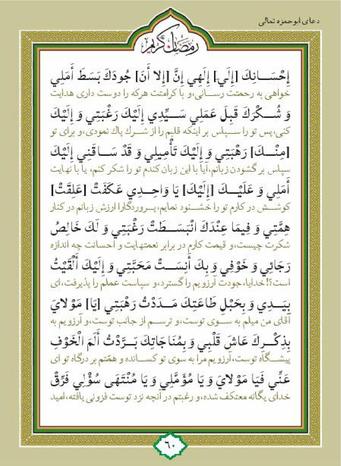 دعای ابوحمزه ثمالی
رمضان کریم
إِحْسَانِكَ [إِلَيَّ] إِلَهِي إِنَّ [إِلا أَنَ] جُودَكَ بَسَطَ أَمَلِي
خواهی به رحمتت رسانی،و با کرامتت هرکه را دوست داری هدایت
وَ شُكْرَكَ قَبِلَ عَمَلِي سَيِّدِي إِلَيْكَ رَغْبَتِي وَ إِلَيْكَ
کنی،پس تو را سپاس بر اینکه قلبم را از شرک پاک نمودی،و برای تو
[مِنْكَ] رَهْبَتِي وَ إِلَيْكَ تَأْمِيلِي وَ قَدْ سَاقَنِي إِلَيْكَ
سپاس بر گشودن زبانم،آیا با این زبان کندم تو را شکر کنم، یا با نهایت
أَمَلِي وَ عَلَيْكَ [إِلَيْكَ] يَا وَاحِدِي عَكَفَتْ [عَلِقَتْ]
کوشش در کارم تو را خشنود نمایم،پروردگارا ارزش زبانم در کنار
هِمَّتِي وَ فِيمَا عِنْدَكَ انْبَسَطَتْ رَغْبَتِي وَ لَكَ خَالِصُ
شکرت چیست،و قیمت کارم در برابر نعمتهایت و احسانت چه اندازه
رَجَائِي وَ خَوْفِي وَ بِكَ أَنِسَتْ مَحَبَّتِي وَ إِلَيْكَ أَلْقَيْتُ
است؟!خدایا، جودت آرزویم را گسترد، و سپاست عملم را پذیرفت، ای
بِيَدِي وَ بِحَبْلِ طَاعَتِكَ مَدَدْتُ رَهْبَتِي [يَا] مَوْلايَ
آقای من میلم به سوی توست،و ترسم از جانب توست،و آرزویم به
بِذِكْرِكَ عَاشَ قَلْبِي وَ بِمُنَاجَاتِكَ بَرَّدْتُ أَلَمَ الْخَوْفِ
پیشگاه توست،آرزویم مرا به سوی تو کشانده و همّتم بر درگاه تو ای
عَنِّي فَيَا مَوْلايَ وَ يَا مُؤَمَّلِي وَ يَا مُنْتَهَى سُؤْلِي فَرِّقْ
خدای یگانه معتکف شده،و رغبتم در آنچه نزد توست فزونی یافته، امید
۶۰